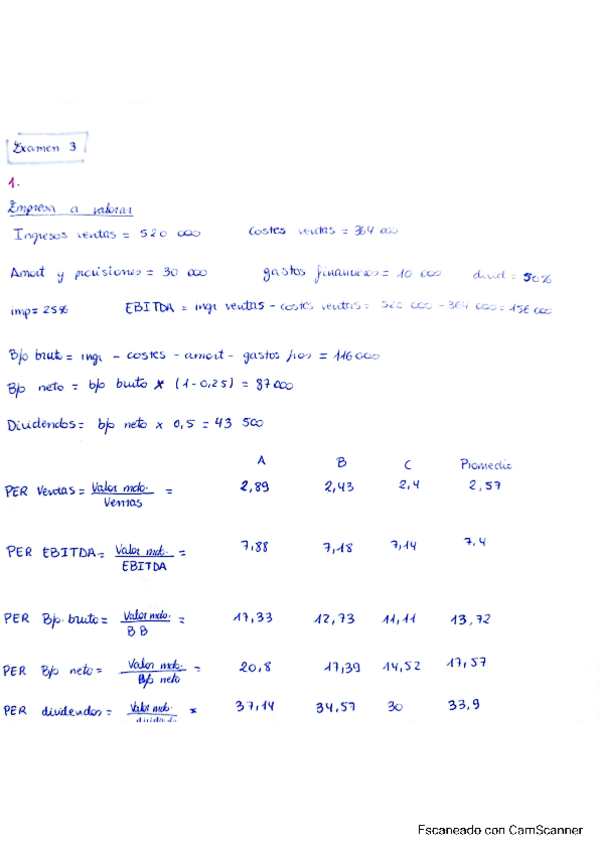 Examen 3
1.
Empresa a valorar
Ingresos ventas = 520 000 Costes ventas = 364 000
Amort y provisiones = 30 000 gastos financieros = 10 000 divid = 50%
imp = 25% EBITDA = ingr ventas - costes ventas = 520 000 - 364 000 = 156 000
B/o brut = ingr - costes - amort - gastos fios = 116 000
B/o neto = b/o bruto x (1-0,25) = 87 000
Dividendos = b/o neto x 0,5 = 43 500
A B C Promedio
PER Ventas = Valor mdo. / Ventas = 2,89 2,43 2,4 2,57
PER EBITDA = Valor mdo. / EBITDA = 7,88 7,18 7,14 7,4
PER B/o bruto = Valor mdo. / BB = 17,33 12,73 11,11 13,72
PER B/o neto = Valor mdo. / B/o neto = 20,8 17,39 14,52 17,57
PER dividendos = Valor mdo. / dividendo = 37,14 34,57 30 33,9
Escaneado con CamScanner